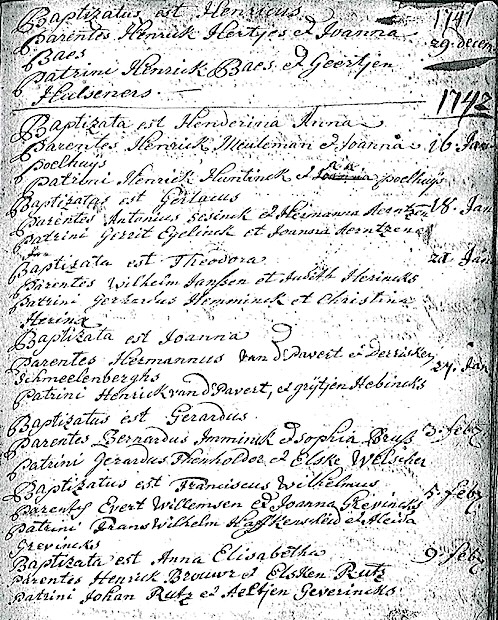 Baptizatus est Henricus 1741
Parentes Henrick Hertjes et Joanna 29 decem
Baes
Patrini Henrick Baes et Geertjen
Hulseners.
1742
Baptizata est Henderina Anna
Parentes Henrick Meuleman et Joanna 16 Jan
poelhuys
Patrini Henrick Huntinck et poelhuys
Baptizatus est Gerlacus 18. Jan
Parentes Antonius Sesinck et Hermanna Aerntzen
Patrini Gerrit Egelinck et Joanna Aerntzen
Baptizata est Theodora 21 Jan
Parentes Wilhelm Janssen et Judith Herincks
Patrini Gerhardus Hemminck et Christina
Herinck
Baptizata est Joanna
Parentes Hermannus van d Pavert et Derrisken 24. Jan
Schmeelenberghs
Patrini Henrick van d Pavert, et grijtjen Hebincks
Baptizatus est Gerardus 3. feb
Parentes Bernardus Imminck et Sophia Bruss
Patrini Gerardus Thenholder et Elske Welscher
Baptizatus est Franciscus Wilhelmus 5. feb
Parentes Evert Willemsen et Joanna Grevincks
Patrini Frans Wilhelm Haffkenscheid et Aleida
Grevincks
Baptizata est Anna Elisabetha 9. feb
Parentes Henrick Brouwr et Elsken Rutz
Patrini Johan Rutz et Aeltjen Geverincks